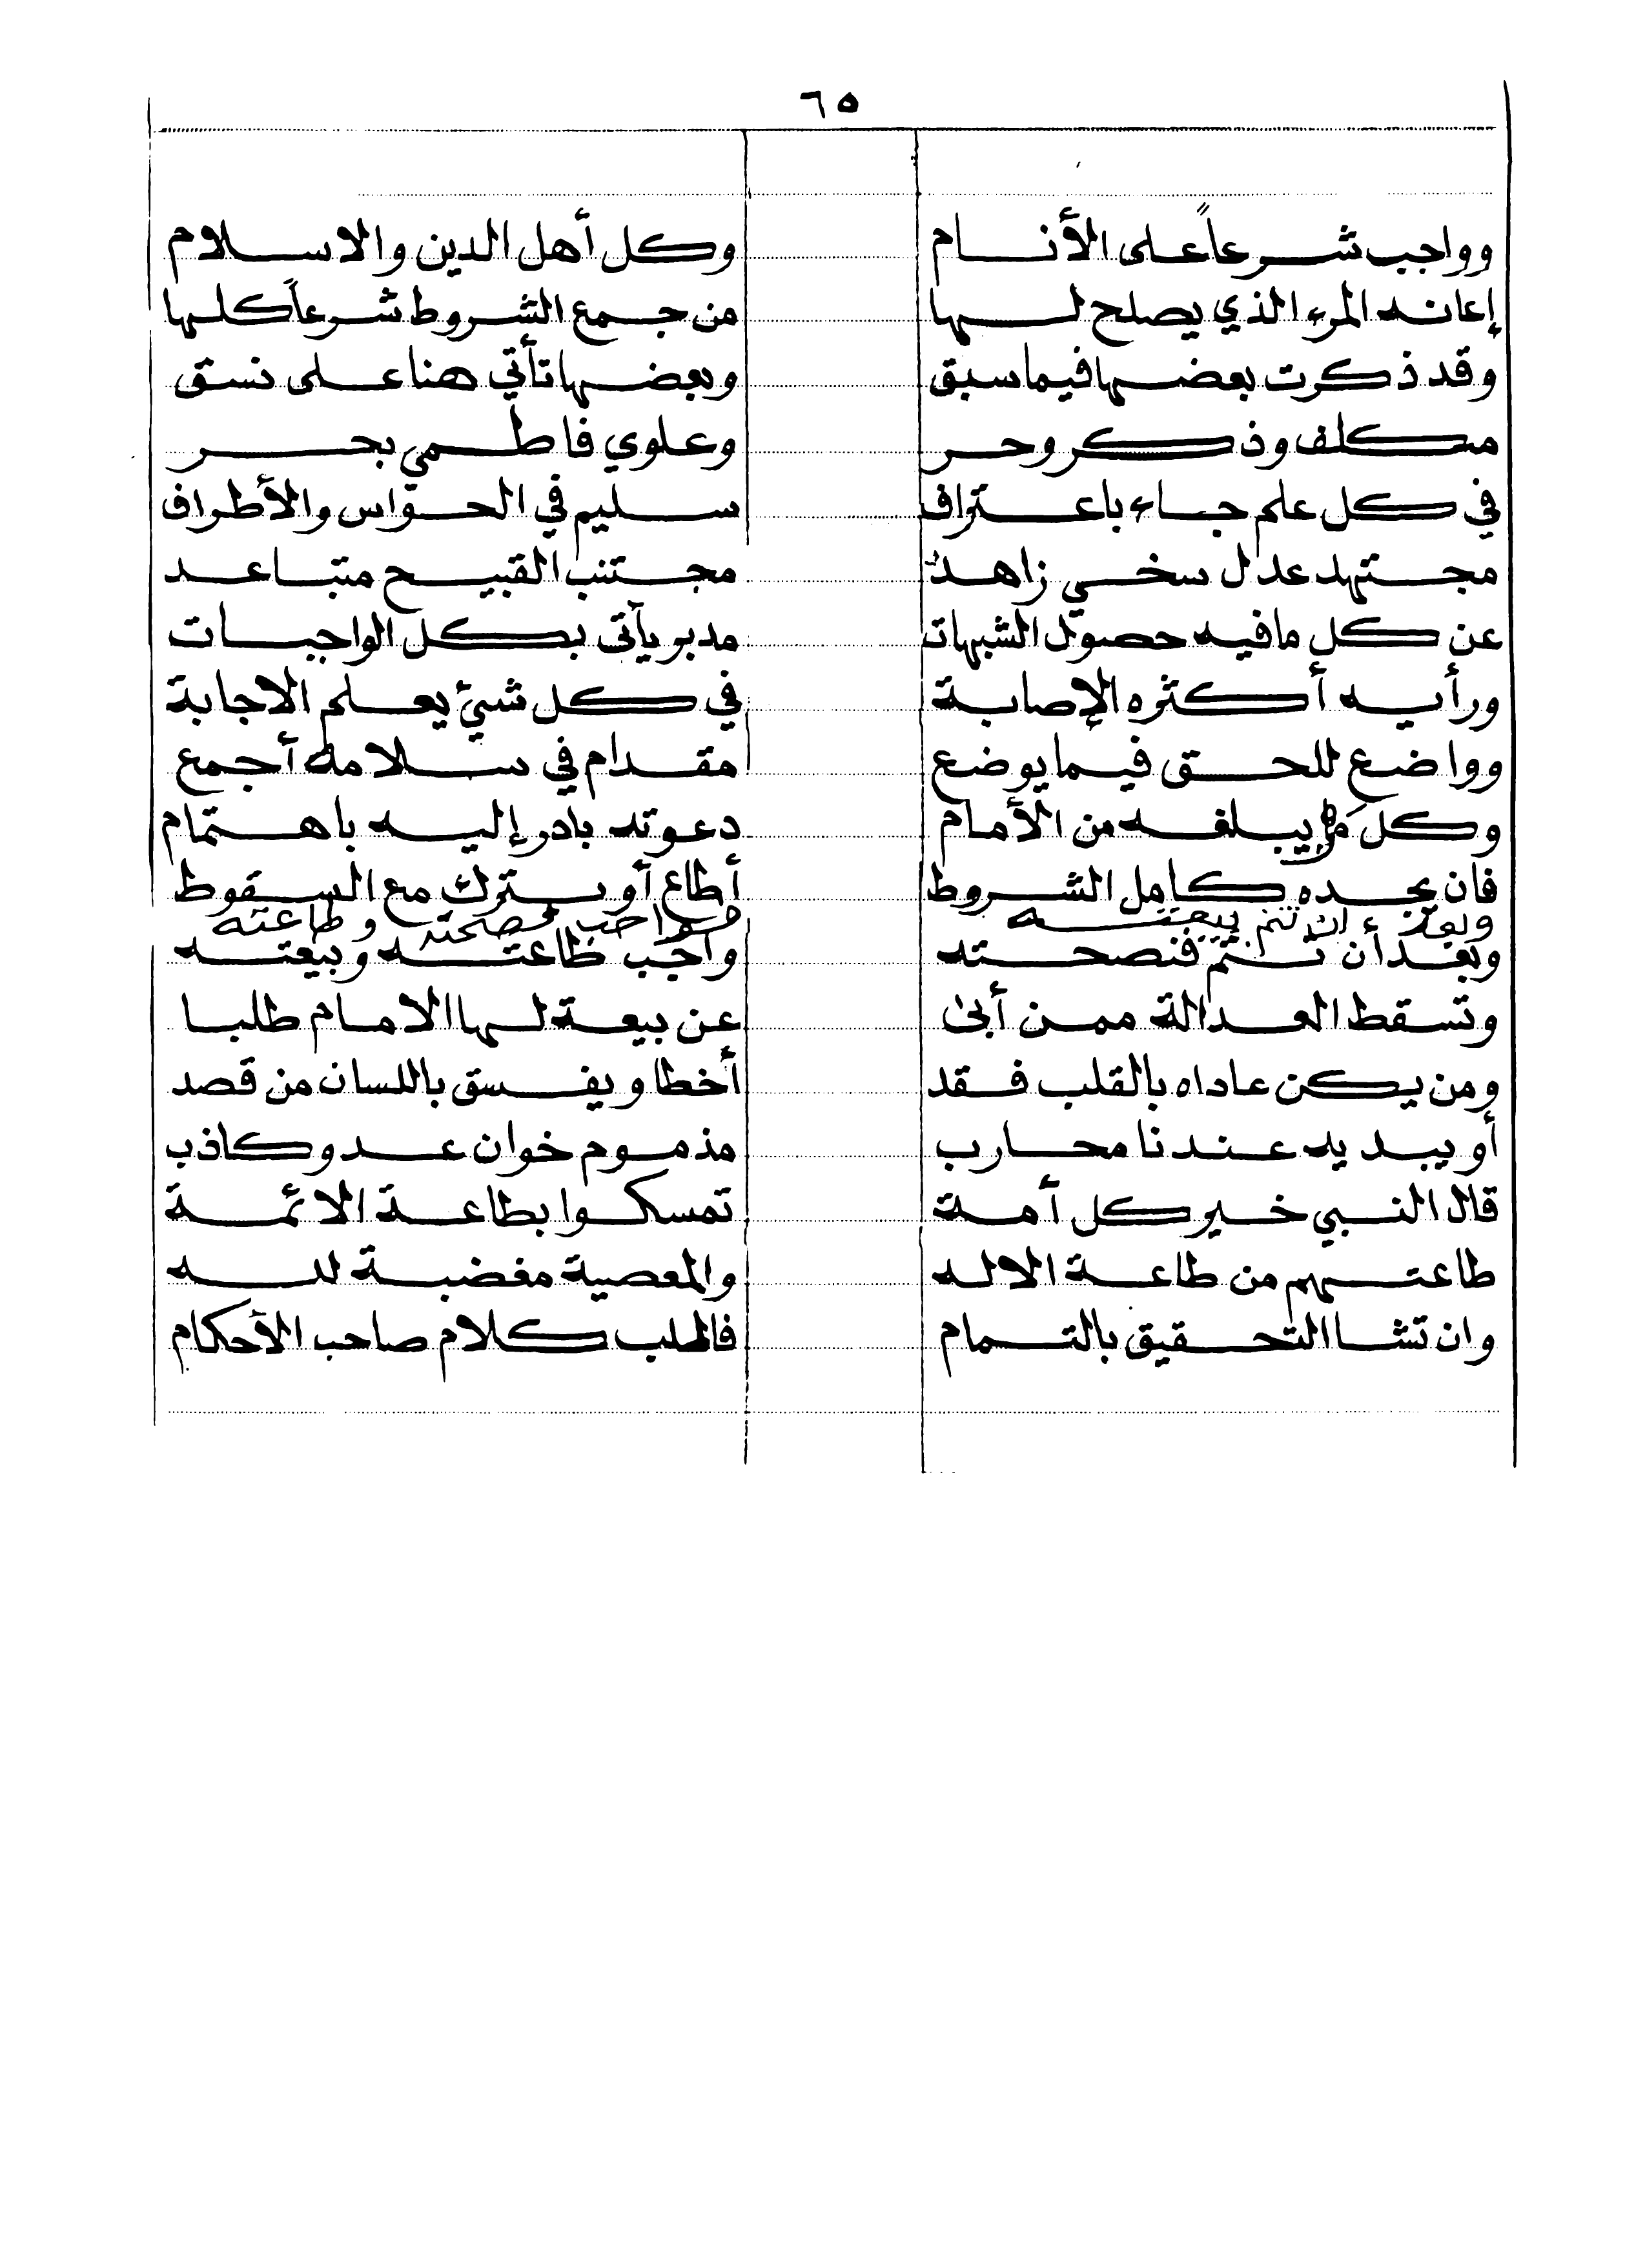 ٦٥
وواجب شرعاً على الأنام وكل أهل الدين والاسلام
إعانه المرء الذي يصلح لها من جمع الشروط شرعاً كلها
وقد ذكرت بعضها فيما سبق وبعضها تأتي هنا على نسق
مكلف وذكر وحر وعلوي فاطمي بحر
في كل علم جاء باعتراف سليم في الحواس والأطراف
مجتهد عدل سخي زاهد مجتنب القبيح متباعد
عن كل مافيه حصول الشبهات مدبر يأتي بكل الواجبات
ورأيه أكثره الإصابة في كل شيئ يعلم الاجابة
وواضع للحق فيما يوضع مقدام في سلامة أجمع
وكل من يبلغه من الأمام دعوته بادر إليه باهتمام
فان يجده كامل الشروط أطاع أو يترك مع السقوط
وبعد ان تتم بيعته واجب نصحته وطاعته
وبعد أن تتم فنصحته واجب طاعته وبيعته
وتسقط العدالة ممن أبى عن بيعة لها الامام طلبا
ومن يكن عاداه بالقلب فقد أخطا ويفسق باللسان من قصد
أو بيديه عندنا محارب مذموم خوان عدو كاذب
قال النبي خير كل أمة تمسكوا بطاعة الائمة
طاعتهم من طاعة الاله والمعصية مغضبة لله
وان تشا التحقيق بالتمام فاطلب كلام صاحب الأحكام